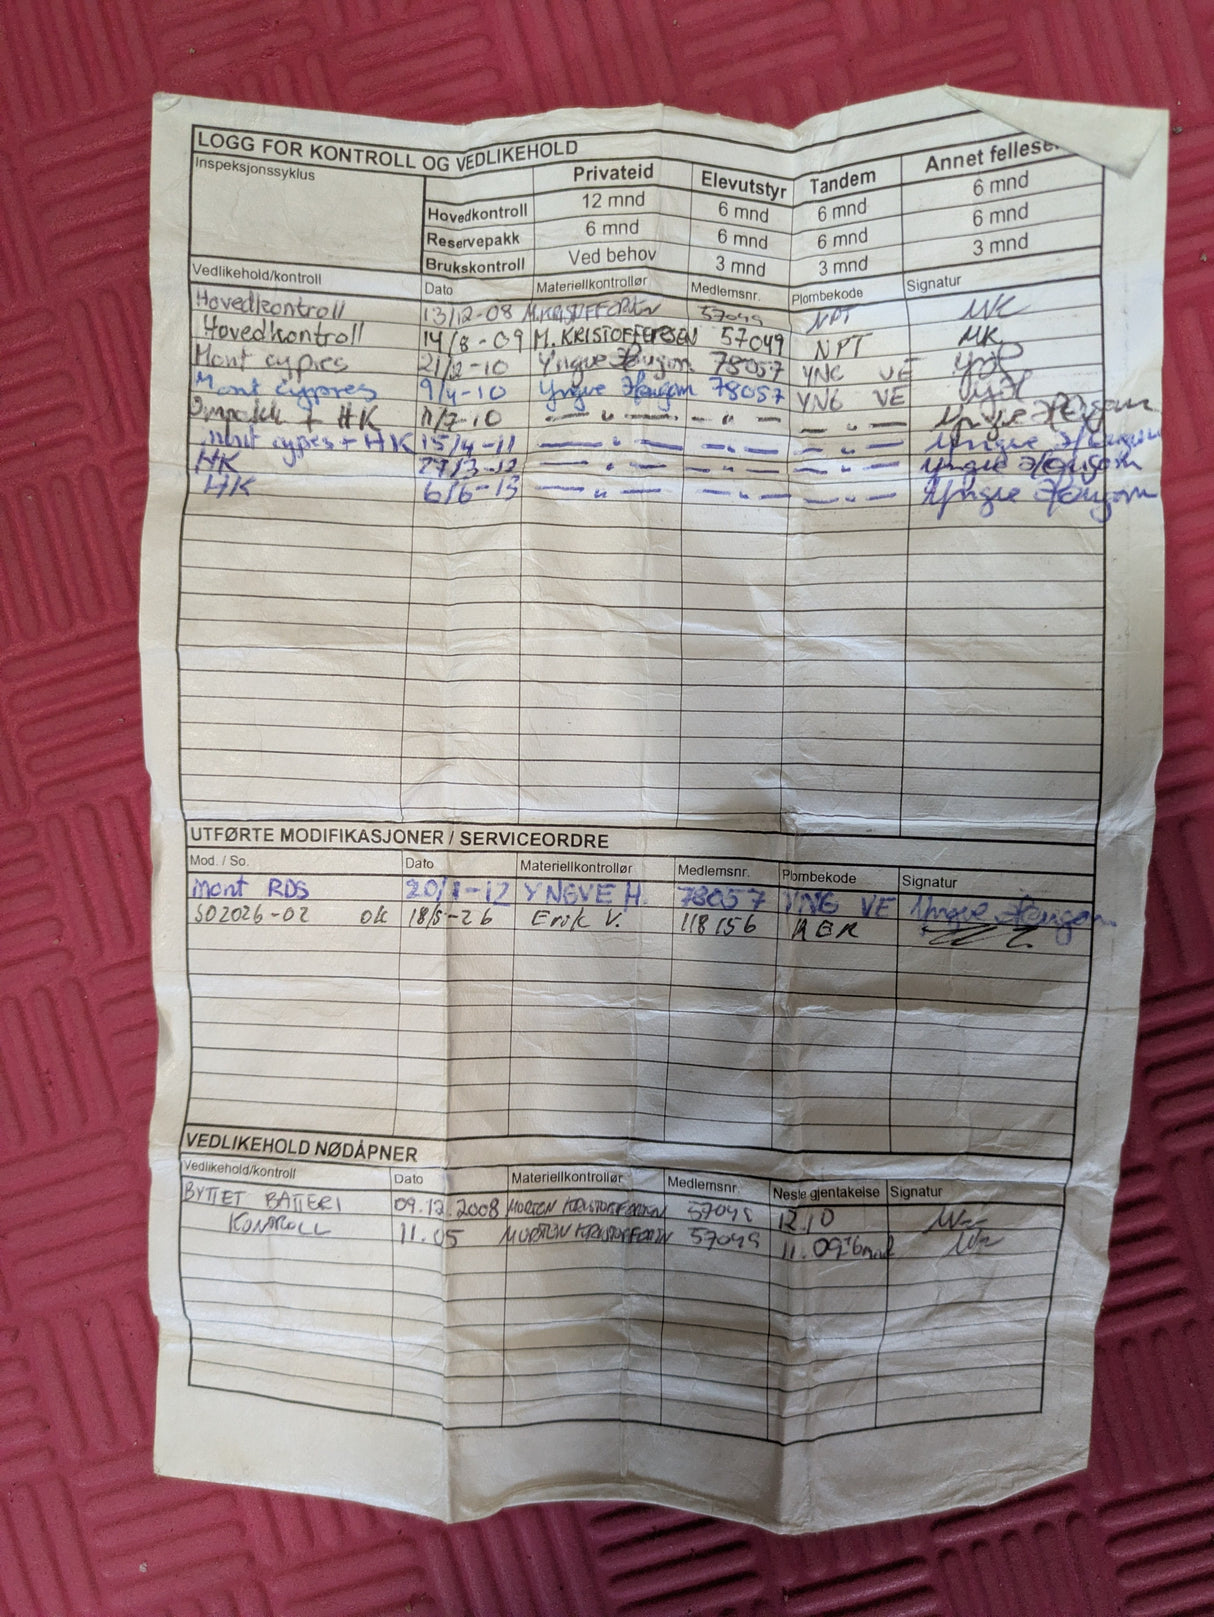 LOGG FOR KONTROLL OG VEDLIKEHOLD
Inspeksjonssyklus Privateid Elevutstyr Tandem Annet felleseie
Hovedkontroll 12 mnd 6 mnd 6 mnd 6 mnd
Reservepakk 6 mnd 6 mnd 6 mnd 6 mnd
Brukskontroll Ved behov 3 mnd 3 mnd 3 mnd
Vedlikehold/kontroll Dato Materiellkontrollør Medlemsnr. Plombekode Signatur
Hovedkontroll 13/12-08 M.KRISTOFFERSEN 57049 NPT MK
Hovedkontroll 14/8-09 M. KRISTOFFERSEN 57049 NPT MK
Mont cypres Yngve Haugom 78057 YNG VE YH
Mont cypres 9/4-10 Yngve Haugom 78057 YNG VE YH
Ompakk + HK 11/7-10 — " — — " — — " — Yngve Haugom
Mont cypres + HK 15/4-11 — " — — " — — " — Yngve Haugom
HK 27/3-12 — " — — " — — " — Yngve Haugom
HK 6/6-13 — " — — " — — " — Yngve Haugom
UTFØRTE MODIFIKASJONER / SERVICEORDRE
Mod. / So. Dato Materiellkontrollør Medlemsnr. Plombekode Signatur
Mont RDS YNGVE H. 78057 YNG VE Yngve Haugom
SO2026-02 ok 18/5-26 Erik V. 118156 RER
VEDLIKEHOLD NØDÅPNER
Vedlikehold/kontroll Dato Materiellkontrollør Medlemsnr. Neste gjentakelse Signatur
BYTTET BATTERI 09.12.2008 MORTEN KRISTOFFERSEN 57049 12.10
KONTROLL 11.05 MORTEN KRISTOFFERSEN 57049 11.09